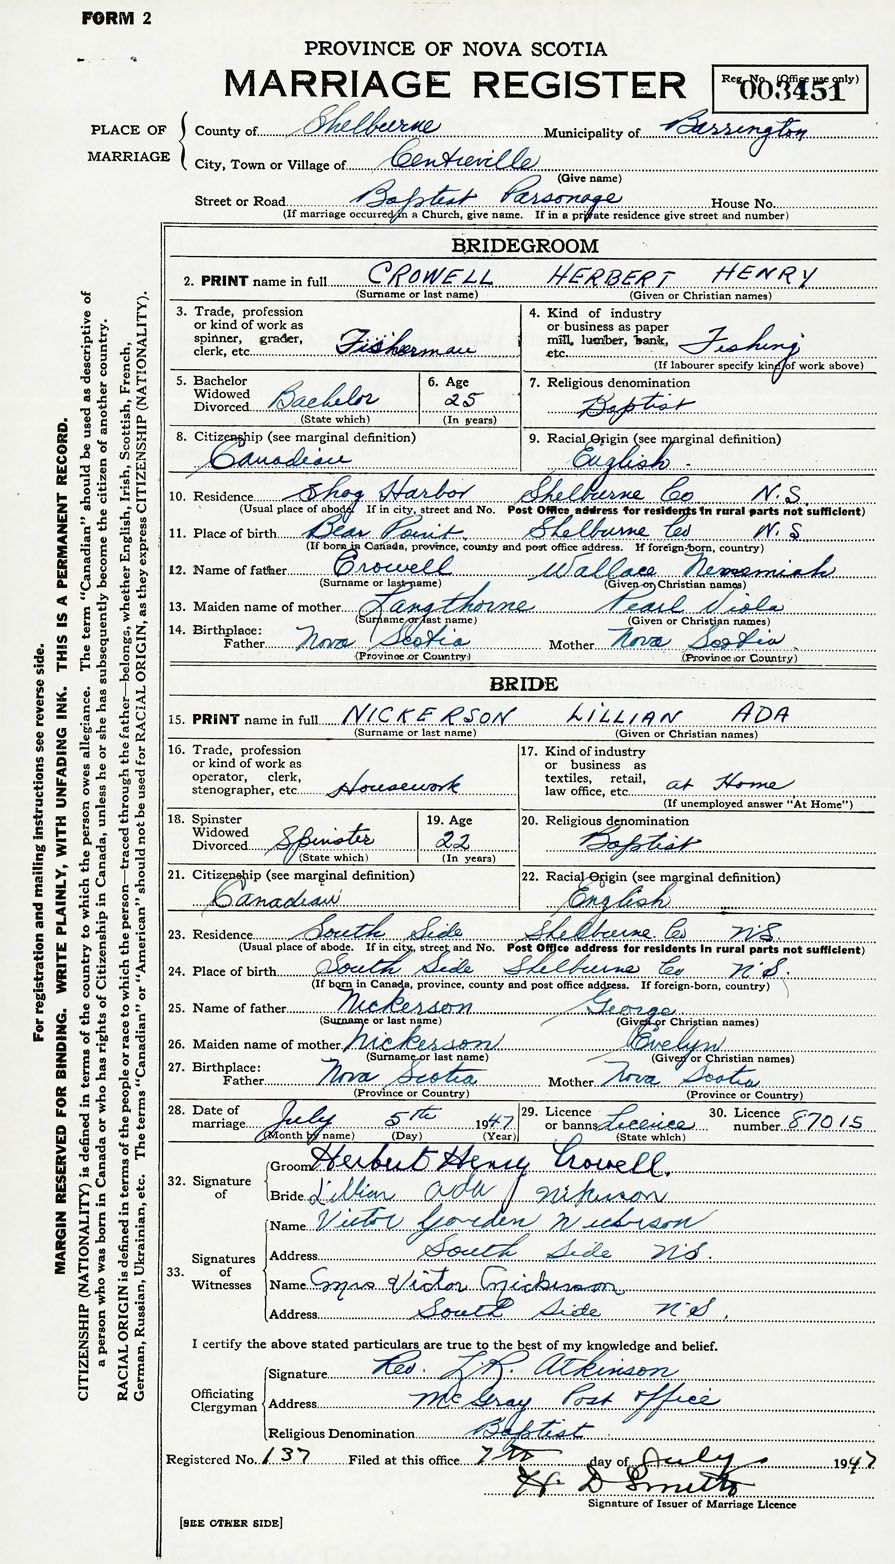 FORM 2
PROVINCE OF NOVA SCOTIA
MARRIAGE REGISTER
Reg. No. (Office use only)
003451
PLACE OF MARRIAGE
County of Shelburne Municipality of Barrington
City, Town or Village of Centreville
(Give name)
Street or Road Baptist Parsonage House No.
(If marriage occurred in a Church, give name. If in a private residence give street and number)
BRIDEGROOM
2. PRINT name in full CROWELL HERBERT HENRY
(Surname or last name) (Given or Christian names)
3. Trade, profession or kind of work as spinner, grader, clerk, etc. Fisherman
4. Kind of industry or business as paper mill, lumber, bank, etc. Fishing
(If labourer specify kind of work above)
5. Bachelor Widowed Divorced Bachelor
(State which)
6. Age 25
(In years)
7. Religious denomination
Baptist
8. Citizenship (see marginal definition)
Canadian
9. Racial Origin (see marginal definition)
English
10. Residence Shag Harbor Shelburne Co N.S.
(Usual place of abode. If in city, street and No. Post Office address for residents in rural parts not sufficient)
11. Place of birth Bear Point Shelburne Co N.S
(If born in Canada, province, county and post office address. If foreign-born, country)
12. Name of father Crowell Wallace Nememiah
(Surname or last name) (Given or Christian names)
13. Maiden name of mother Langthorne Pearl Viola
(Surname or last name) (Given or Christian names)
14. Birthplace: Father Nova Scotia Mother Nova Scotia
(Province or Country) (Province or Country)
BRIDE
15. PRINT name in full NICKERSON LILLIAN ADA
(Surname or last name) (Given or Christian names)
16. Trade, profession or kind of work as operator, clerk, stenographer, etc. Housework
17. Kind of industry or business as textiles, retail, law office, etc. at Home
(If unemployed answer "At Home")
18. Spinster Widowed Divorced Spinster
(State which)
19. Age 22
(In years)
20. Religious denomination
Baptist
21. Citizenship (see marginal definition)
Canadian
22. Racial Origin (see marginal definition)
English
23. Residence South Side Shelburne Co N.S.
(Usual place of abode. If in city, street and No. Post Office address for residents in rural parts not sufficient)
24. Place of birth South Side Shelburne Co N.S.
(If born in Canada, province, county and post office address. If foreign-born, country)
25. Name of father Nickerson George
(Surname or last name) (Given or Christian names)
26. Maiden name of mother Nickerson Evelyn
(Surname or last name) (Given or Christian names)
27. Birthplace: Father Nova Scotia Mother Nova Scotia
(Province or Country) (Province or Country)
28. Date of marriage July 5th 1947
(Month by name) (Day) (Year)
29. Licence or banns Licence
(State which)
30. Licence number 87015
32. Signature of
Groom Herbert Henry Crowell.
Bride Lillian Ada Nikerson
33. Signatures of Witnesses
Name Victor Gorden Nickerson
Address South Side N.S.
Name Mrs Victor Nickerson
Address South Side N.S.
I certify the above stated particulars are true to the best of my knowledge and belief.
Officiating Clergyman
Signature Rev. L.R. Atkinson
Address McGray Post Office
Religious Denomination Baptist
Registered No. 137 Filed at this office 7th day of July 1947
H. D Smith
Signature of Issuer of Marriage Licence
[SEE OTHER SIDE]
For registration and mailing instructions see reverse side.
MARGIN RESERVED FOR BINDING. WRITE PLAINLY, WITH UNFADING INK. THIS IS A PERMANENT RECORD.
CITIZENSHIP (NATIONALITY) is defined in terms of the country to which the person owes allegiance. The term "Canadian" should be used as descriptive of
a person who was born in Canada or who has rights of Citizenship in Canada, unless he or she has subsequently become the citizen of another country.
RACIAL ORIGIN is defined in terms of the people or race to which the person—traced through the father—belongs, whether English, Irish, Scottish, French,
German, Russian, Ukrainian, etc. The terms "Canadian" or "American" should not be used for RACIAL ORIGIN, as they express CITIZENSHIP (NATIONALITY).